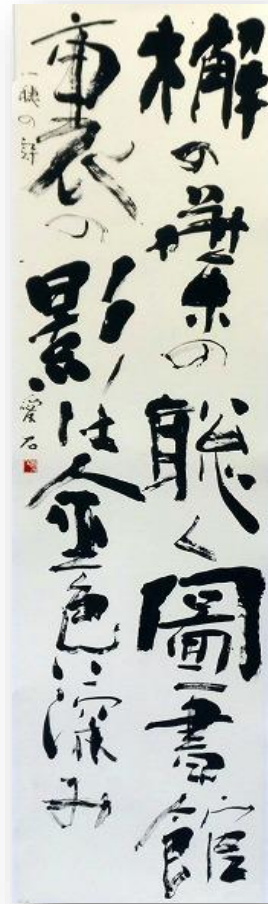 檞の葉の聡く圖書館
裏の影は金色に深み
一穂の詩
愛石